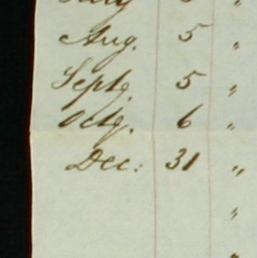 Aug. 5 "
Septr. 5 "
Octr. 6 "
Dec: 31 "
"
"